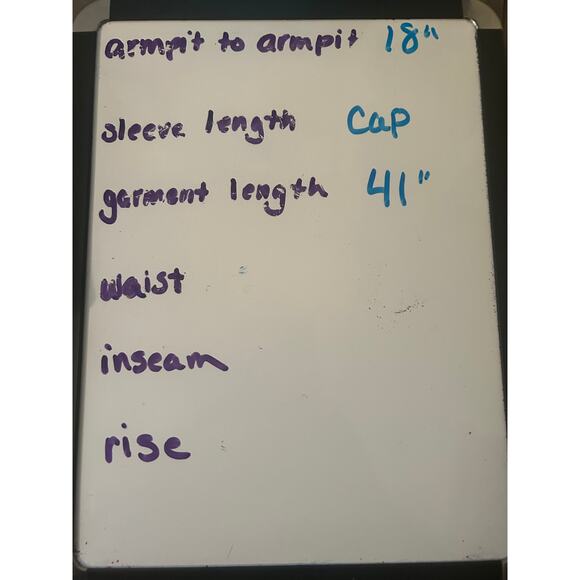 armpit to armpit 18"
sleeve length cap
garment length 41"
waist
inseam
rise